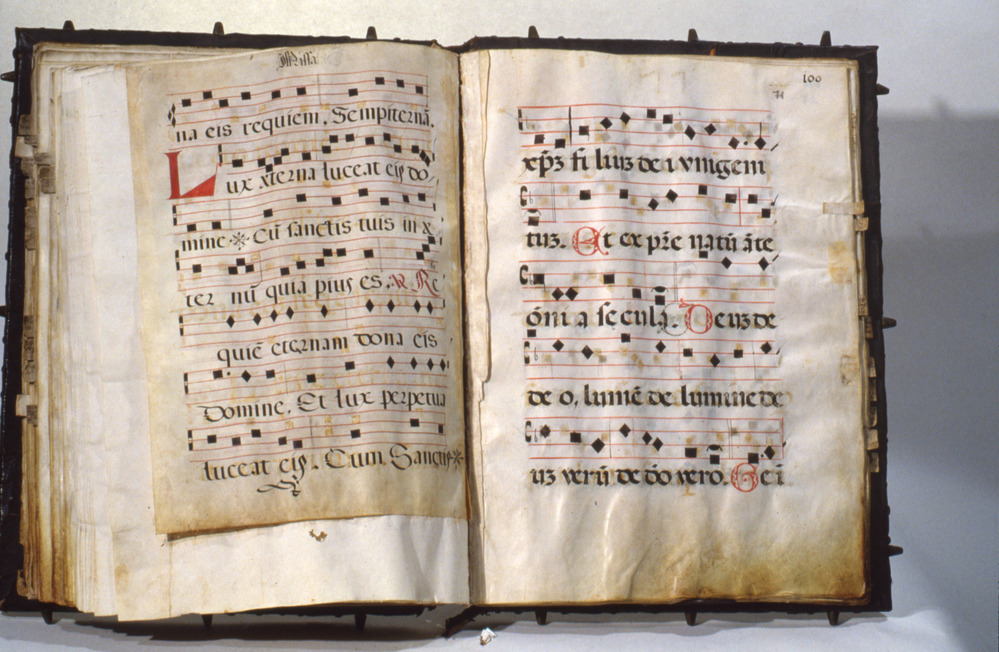 Missa
na eis requiem. Sempiternā.
Lux æterna luceat eis do
mine * Cū sanctis tuis in æ
ter nū quia pius es. ℣ Re
quiē eternam dona eis
Domine. Et lux perpetua
luceat eis. Cum Sanctis *
100
71
xp̄s fi liuz de i vnigeni
tuz. Et ex pr̄e natū āte
ōni a secula. Deuz de
de o, lumē de lumine de
uz verū de dō vero. Geī